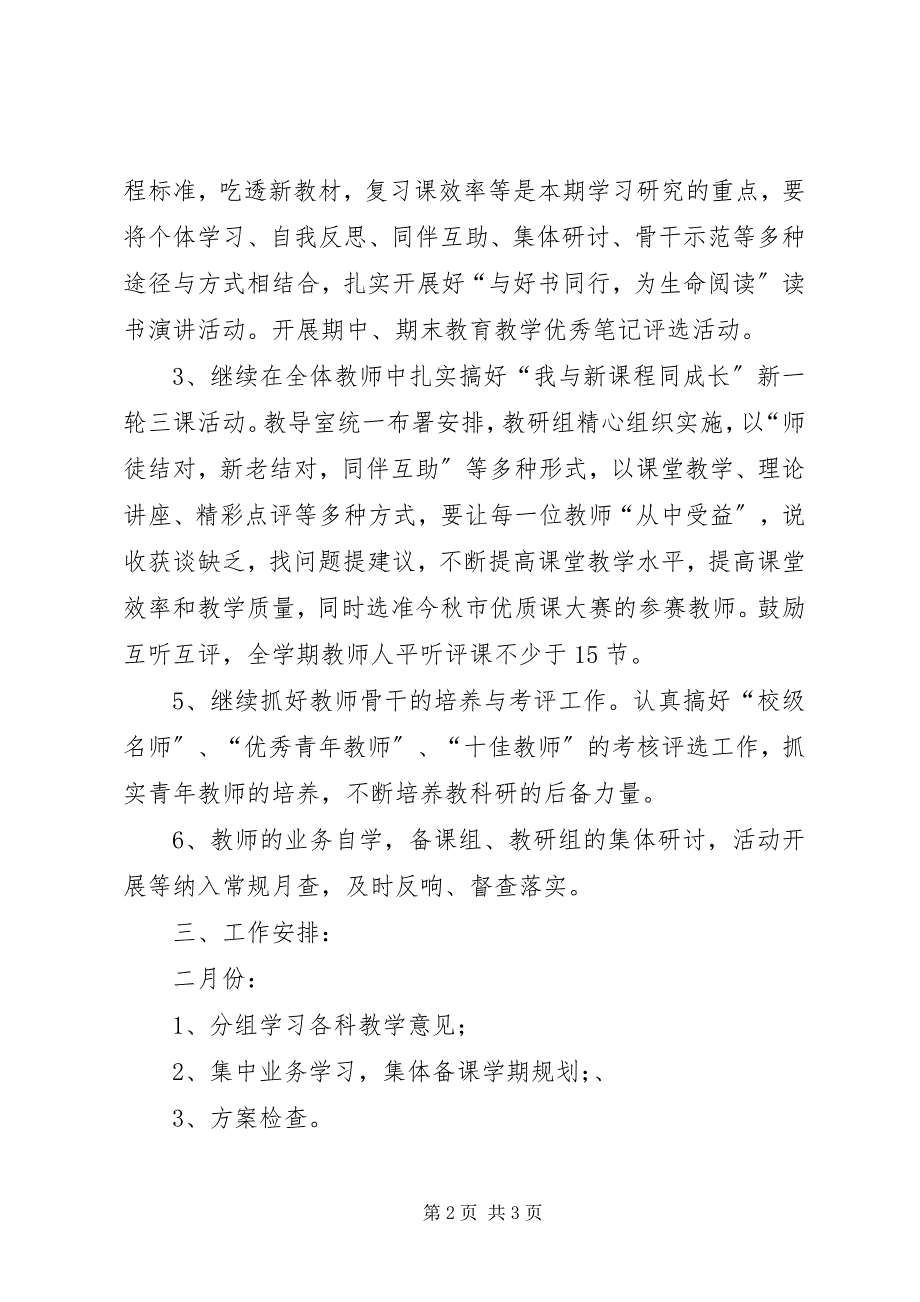 程标准，吃透新教材，复习课效率等是本期学习研究的重点，要
将个体学习、自我反思、同伴互助、集体研讨、骨干示范等多种
途径与方式相结合，扎实开展好“与好书同行，为生命阅读〞读
书演讲活动。开展期中、期末教育教学优秀笔记评选活动。
3、继续在全体教师中扎实搞好“我与新课程同成长〞新一
轮三课活动。教导室统一布署安排，教研组精心组织实施，以“师
徒结对，新老结对，同伴互助〞等多种形式，以课堂教学、理论
讲座、精彩点评等多种方式，要让每一位教师“从中受益〞，说
收获谈缺乏，找问题提建议，不断提高课堂教学水平，提高课堂
效率和教学质量，同时选准今秋市优质课大赛的参赛教师。鼓励
互听互评，全学期教师人平听评课不少于 15 节。
5、继续抓好教师骨干的培养与考评工作。认真搞好“校级
名师〞、“优秀青年教师〞、“十佳教师〞的考核评选工作，抓
实青年教师的培养，不断培养教科研的后备力量。
6、教师的业务自学，备课组、教研组的集体研讨，活动开
展等纳入常规月查，及时反响、督查落实。
三、工作安排：
二月份：
1、分组学习各科教学意见；
2、集中业务学习，集体备课学期规划；、
3、方案检查。
第 2 页 共 3 页